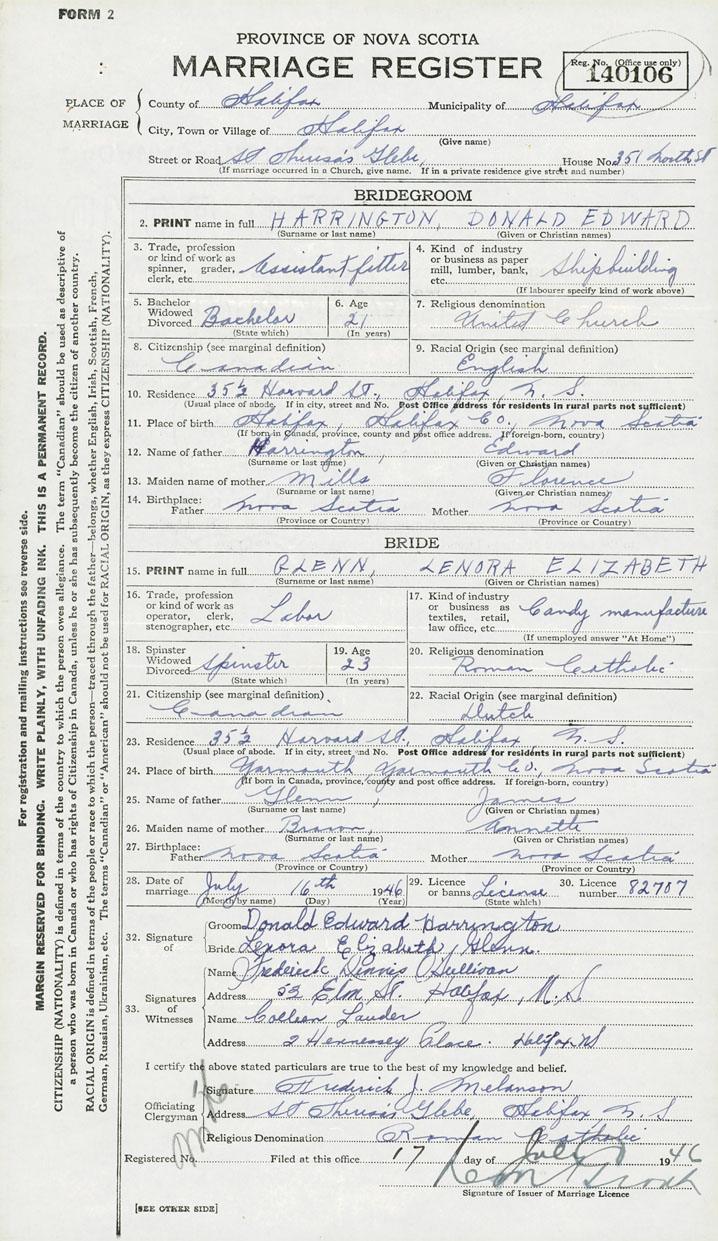 FORM 2
PROVINCE OF NOVA SCOTIA
MARRIAGE REGISTER
Reg. No. (Office use only)
140106
PLACE OF MARRIAGE
County of Halifax Municipality of Halifax
City, Town or Village of Halifax
(Give name)
Street or Road St Theresa's Glebe, House No. 351 North St
(If marriage occurred in a Church, give name. If in a private residence give street and number)
BRIDEGROOM
2. PRINT name in full HARRINGTON, DONALD EDWARD
(Surname or last name) (Given or Christian names)
3. Trade, profession or kind of work as spinner, grader, clerk, etc. Assistant fitter
4. Kind of industry or business as paper mill, lumber, bank, etc. Shipbuilding
(If labourer specify kind of work above)
5. Bachelor Widowed Divorced Bachelor
(State which)
6. Age 21
(In years)
7. Religious denomination
United Church
8. Citizenship (see marginal definition)
Canadian
9. Racial Origin (see marginal definition)
English
10. Residence 35½ Harvard St., Halifax, N. S.
(Usual place of abode. If in city, street and No. Post Office address for residents in rural parts not sufficient)
11. Place of birth Halifax, Halifax Co, Nova Scotia
(If born in Canada, province, county and post office address. If foreign-born, country)
12. Name of father Harrington, Edward
(Surname or last name) (Given or Christian names)
13. Maiden name of mother Mills Florence
(Surname or last name) (Given or Christian names)
14. Birthplace: Father Nova Scotia Mother Nova Scotia
(Province or Country) (Province or Country)
BRIDE
15. PRINT name in full GLENN, LENORA ELIZABETH
(Surname or last name) (Given or Christian names)
16. Trade, profession or kind of work as operator, clerk, stenographer, etc. Labor
17. Kind of industry or business as textiles, retail, law office, etc. Candy manufacture
(If unemployed answer "At Home")
18. Spinster Widowed Divorced Spinster
(State which)
19. Age 23
(In years)
20. Religious denomination
Roman Catholic
21. Citizenship (see marginal definition)
Canadian
22. Racial Origin (see marginal definition)
Dutch
23. Residence 35½ Harvard St., Halifax N. S.
(Usual place of abode. If in city, street and No. Post Office address for residents in rural parts not sufficient)
24. Place of birth Yarmouth, Yarmouth Co., Nova Scotia
(If born in Canada, province, county and post office address. If foreign-born, country)
25. Name of father Glenn, James
(Surname or last name) (Given or Christian names)
26. Maiden name of mother Brown, Annette
(Surname or last name) (Given or Christian names)
27. Birthplace: Father Nova Scotia Mother Nova Scotia
(Province or Country) (Province or Country)
28. Date of marriage July 16th 1946
(Month by name) (Day) (Year)
29. Licence or banns License
(State which)
30. Licence number 82707
32. Signature of
Groom Donald Edward Harrington
Bride Lenora Elizabeth Glenn.
33. Signatures of Witnesses
Name Frederick Dinnis O'Sullivan
Address 53 Elm St. Halifax, N.S
Name Colleen Lauder
Address 2 Hennessey Place. Halifax NS
I certify the above stated particulars are true to the best of my knowledge and belief.
Officiating Clergyman
Signature Frederick J. Melanson
Address St Theresa's Glebe, Halifax N. S
Religious Denomination Roman Catholic
Registered No. Filed at this office 17 day of July 1946
Signature of Issuer of Marriage Licence
[SEE OTHER SIDE]
For registration and mailing instructions see reverse side.
MARGIN RESERVED FOR BINDING. WRITE PLAINLY, WITH UNFADING INK. THIS IS A PERMANENT RECORD.
CITIZENSHIP (NATIONALITY) is defined in terms of the country to which the person owes allegiance. The term "Canadian" should be used as descriptive of
a person who was born in Canada or who has rights of Citizenship in Canada, unless he or she has subsequently become the citizen of another country.
RACIAL ORIGIN is defined in terms of the people or race to which the person—traced through the father—belongs, whether English, Irish, Scottish, French,
German, Russian, Ukrainian, etc. The terms "Canadian" or "American" should not be used for RACIAL ORIGIN, as they express CITIZENSHIP (NATIONALITY).